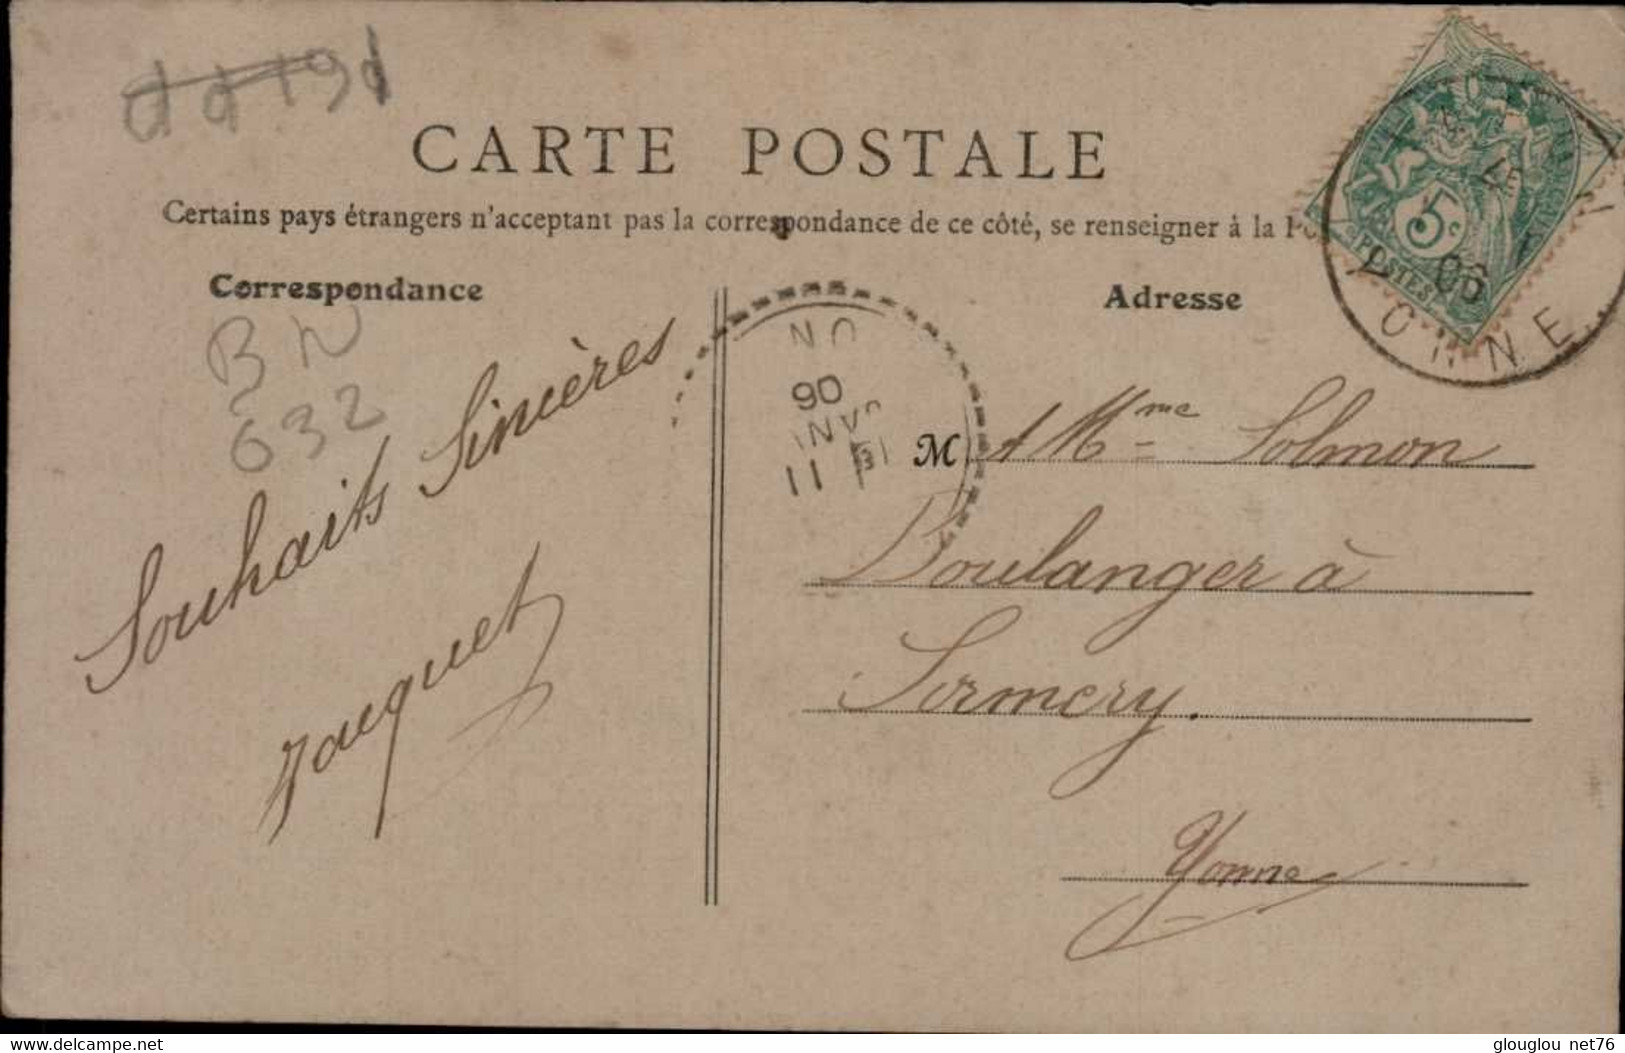 CARTE POSTALE
Certains pays étrangers n'acceptant pas la correspondance de ce côté, se renseigner à la
Correspondance
Adresse
BN
632
Souhaits Sincères
Jacquet
5c
POSTES
06
YONNE
M & Mme Solmon
Boulanger à
Sormery.
Yonne
delcampe.net
glouglou net76